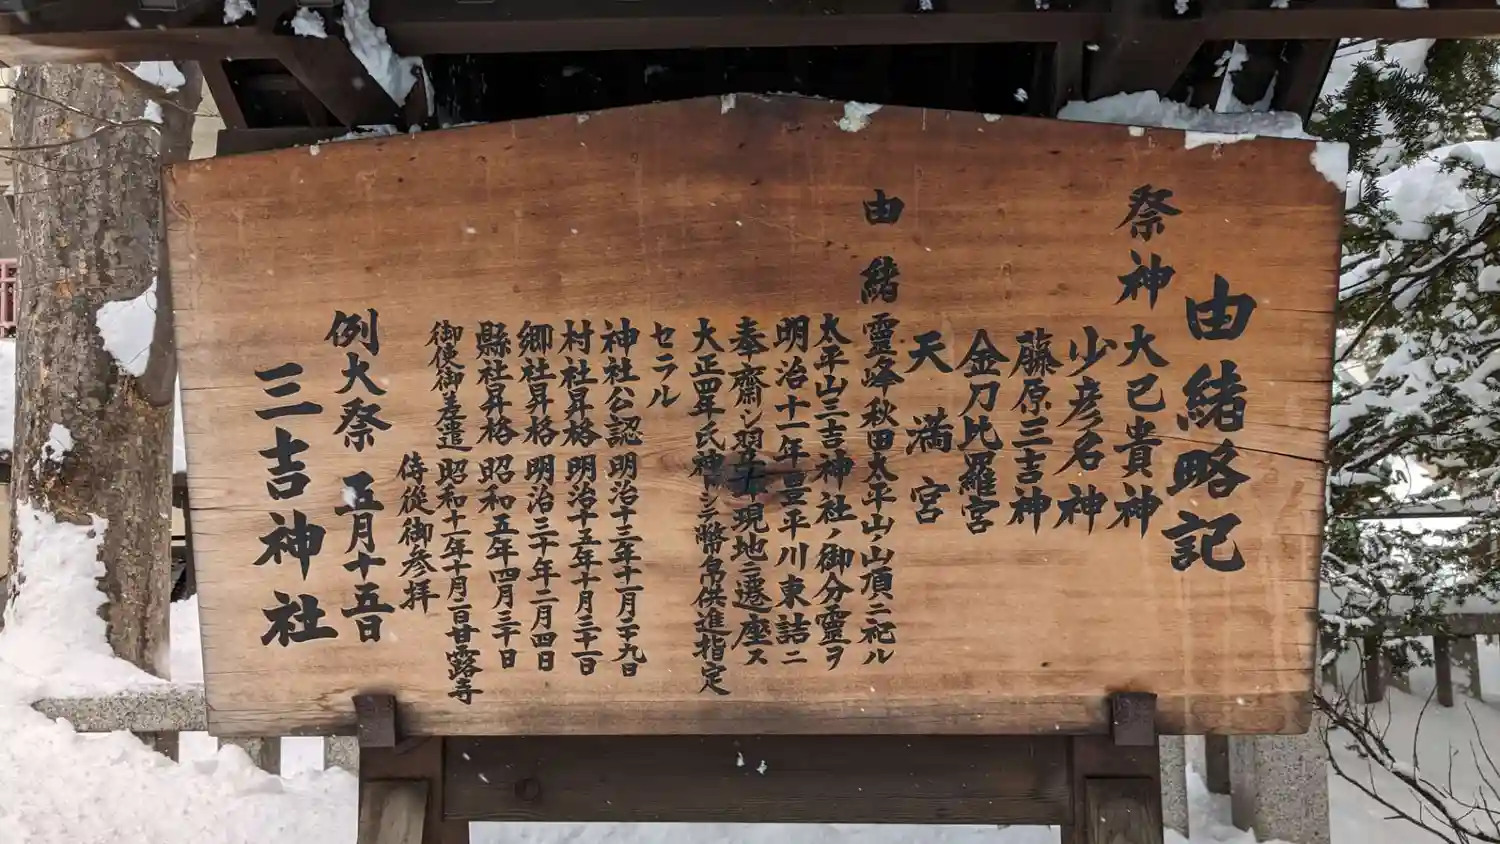 由緒略記
祭神 大己貴神
少彦名神
藤原三吉神
金刀比羅宮
天満宮
由緒 靈峰秋田太平山ノ山頂ニ祀ル
太平山三吉神社ノ御分靈ヲ
明治十一年豊平川東詰ニ
奉齋シ翌 年現地ニ遷座ス
大正四年氏神トシ幣帛供進指定
セラル
神社公認 明治十三年十一月二十九日
村社昇格 明治十五年十月三十一日
郷社昇格 明治三十年十二月四日
縣社昇格 昭和五年四月三十日
御使御差遣 昭和十一年十月二日甘露寺
侍從御参拝
例大祭 五月十五日
三吉神社